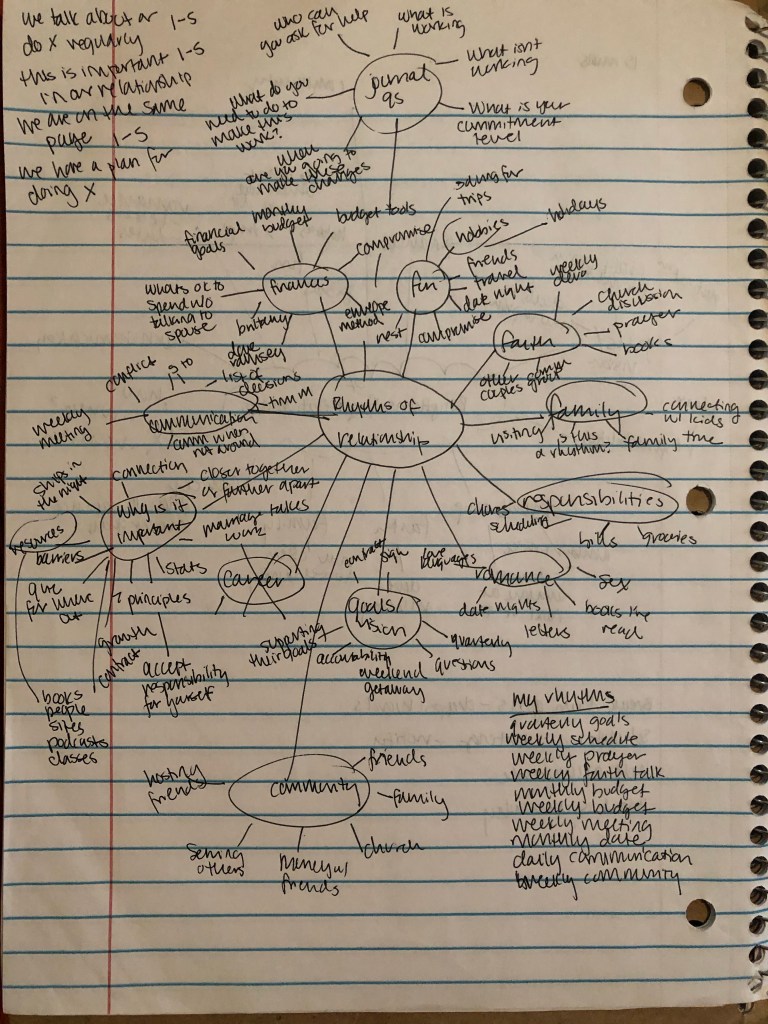 we talk about or
do x regularly 1-5
1-5
this is important
in our relationship
we are on the same
page 1-5
we have a plan for
doing x
who can
you ask for help
what is
working
what isn't
working
what is your
commitment
level
journal
qs
what do you
need to do to
make this
work?
when
are you going to
make these
changes
financial
goals
monthly
budget
budget tools
compromise
whats ok to
spend w/o
talking to
spouse
finances
brittany
dave
ramsey
envelope
method
saving for
trips
hobbies
holidays
fun
friends
travel
date night
rest
compromise
weekly
devo
church
discussion
prayer
books
faith
other
couples
group
conflict
list of
decisions
weekly
meeting
communication
comm when
not around
Rhythms of
relationship
family
connecting
w/ kids
visiting
is this
a rhythm?
family time
ships in
the night
connection
closer together
or farther apart
why is it
important
marriage takes
work
resources
barriers
stats
give
for where
out
7 principles
growth
contract
accept
responsibility
for yourself
books
people
sites
podcasts
classes
career
supporting
their goals
contract
sign
goals/
vision
accountability
weekend
getaway
quarterly
questions
responsibilities
chores
scheduling
bills
groceries
love
languages
romance
sex
date nights
letters
books
read
community
hosting
friends
friends
family
church
serving
others
friends
my rhythms
quarterly goals
weekly schedule
weekly prayer
weekly faith talk
monthly budget
weekly budget
weekly meeting
monthly date
daily communication
biweekly community